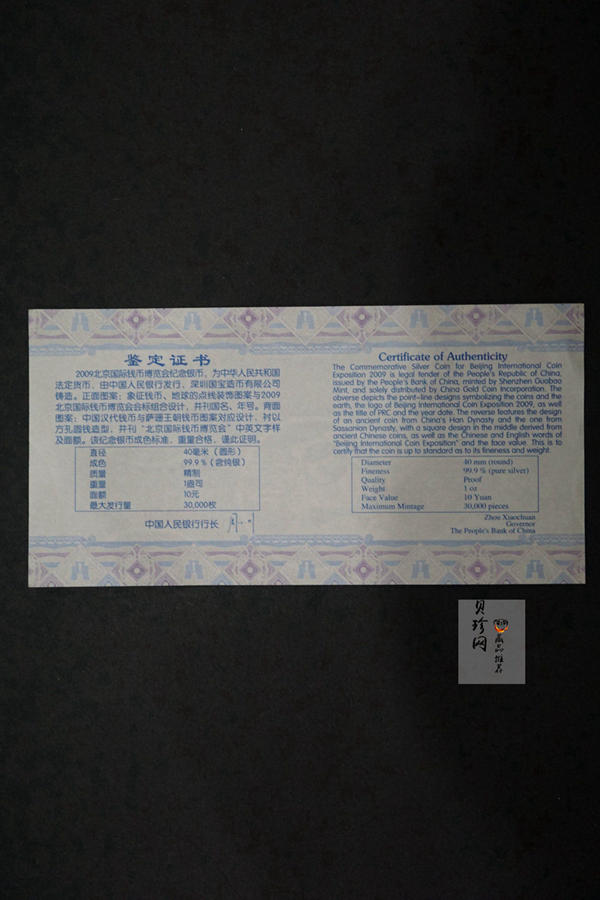 鉴定证书
2009北京国际钱币博览会纪念银币，为中华人民共和国
法定货币，由中国人民银行发行，深圳国宝造币有限公司
铸造。正面图案：象征钱币、地球的点线装饰图案与2009
北京国际钱币博览会会标组合设计，并刊国名、年号。背面
图案：中国汉代钱币与萨珊王朝钱币图案对应设计，衬以
方孔圆钱造型，并刊“北京国际钱币博览会”中英文字样
及面额。该纪念银币成色标准，重量合格，谨此证明。
直径 40毫米（圆形）
成色 99.9％（含纯银）
质量 精制
重量 1盎司
面额 10元
最大发行量 30,000枚
中国人民银行行长
Certificate of Authenticity
The Commemorative Silver Coin for Beijing International Coin
Exposition 2009 is legal tender of the People's Republic of China,
issued by the People's Bank of China, minted by Shenzhen Guobao
Mint, and solely distributed by China Gold Coin Incorporation. The
obverse depicts the point-line designs symbolizing the coins and the
earth, the logo of Beijing International Coin Exposition 2009, as well
as the title of PRC and the year date. The reverse features the design
of an ancient coin from China's Han Dynasty and the one from
Sassanian Dynasty, with a square design in the middle derived from
ancient Chinese coins, as well as the Chinese and English words of
"Beijing International Coin Exposition" and the face value. This is to
certify that the coin is up to standard as to its fineness and weight.
Diameter 40 mm (round)
Fineness 99.9 % (pure silver)
Quality Proof
Weight 1 oz
Face Value 10 Yuan
Maximum Mintage 30,000 pieces
Zhou Xiaochuan
Governor
The People's Bank of China
贝珍网
商品推荐